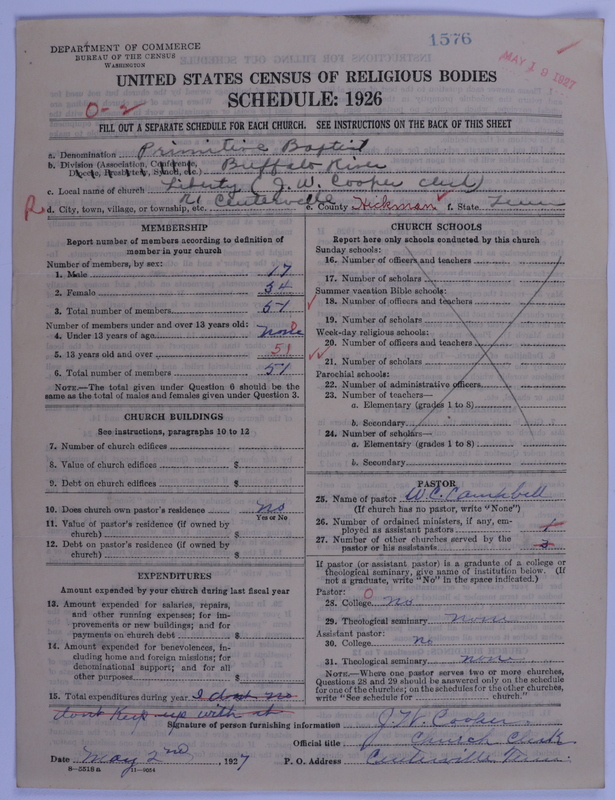 1576
MAY 19 1927
DEPARTMENT OF COMMERCE
BUREAU OF THE CENSUS
WASHINGTON
UNITED STATES CENSUS OF RELIGIOUS BODIES
SCHEDULE: 1926
0-2
FILL OUT A SEPARATE SCHEDULE FOR EACH CHURCH. SEE INSTRUCTIONS ON THE BACK OF THIS SHEET
a. Denomination Primitive Baptist
b. Division (Association, Conference, Diocese, Presbytery, Synod, etc.) Buffalo River
c. Local name of church Liberty (J. W. Cooper clerk)
R d. City, town, village, or township, etc. Centerville e. County Hickman f. State Tenn
MEMBERSHIP
Report number of members according to definition of
member in your church
Number of members, by sex:
1. Male 17
2. Female 34
3. Total number of members 51
Number of members under and over 13 years old:
4. Under 13 years of age none
5. 13 years old and over 51
6. Total number of members 51
NOTE.—The total given under Question 6 should be the
same as the total of males and females given under Question 3.
CHURCH BUILDINGS
See instructions, paragraphs 10 to 12
7. Number of church edifices
8. Value of church edifices $
9. Debt on church edifices $
10. Does church own pastor's residence no
Yes or No
11. Value of pastor's residence (if owned by
church) $
12. Debt on pastor's residence (if owned by
church) $
EXPENDITURES
Amount expended by your church during last fiscal year
13. Amount expended for salaries, repairs,
and other running expenses; for im-
provements or new buildings; and for
payments on church debt $
14. Amount expended for benevolences, in-
cluding home and foreign missions; for
denominational support; and for all
other purposes $
15. Total expenditures during year I dont no
dont keep up with it
CHURCH SCHOOLS
Report here only schools conducted by this church
Sunday schools:
16. Number of officers and teachers
17. Number of scholars
Summer vacation Bible schools:
18. Number of officers and teachers
19. Number of scholars
Week-day religious schools:
20. Number of officers and teachers
21. Number of scholars
Parochial schools:
22. Number of administrative officers
23. Number of teachers—
a. Elementary (grades 1 to 8)
b. Secondary
24. Number of scholars—
a. Elementary (grades 1 to 8)
b. Secondary
PASTOR
25. Name of pastor W. C. Campbell
(If church has no pastor, write "None")
26. Number of ordained ministers, if any, em-
ployed as assistant pastors 1
27. Number of other churches served by the
pastor or his assistants 3
If pastor (or assistant pastor) is a graduate of a college or
theological seminary, give name of institution below. (If
not a graduate, write "No" in the space indicated.)
Pastor: 0
28. College No
29. Theological seminary none
Assistant pastor:
30. College No
31. Theological seminary none
NOTE.—Where one pastor serves two or more churches,
Questions 28 and 29 should be answered only on the schedule
for one of the churches; on the schedules for the other churches,
write "See schedule for church."
Signature of person furnishing information J. W. Cooper
Official title Church Clerk
Date May 2nd, 1927 P. O. Address Centerville Tenn.
8—5518a 11—9054